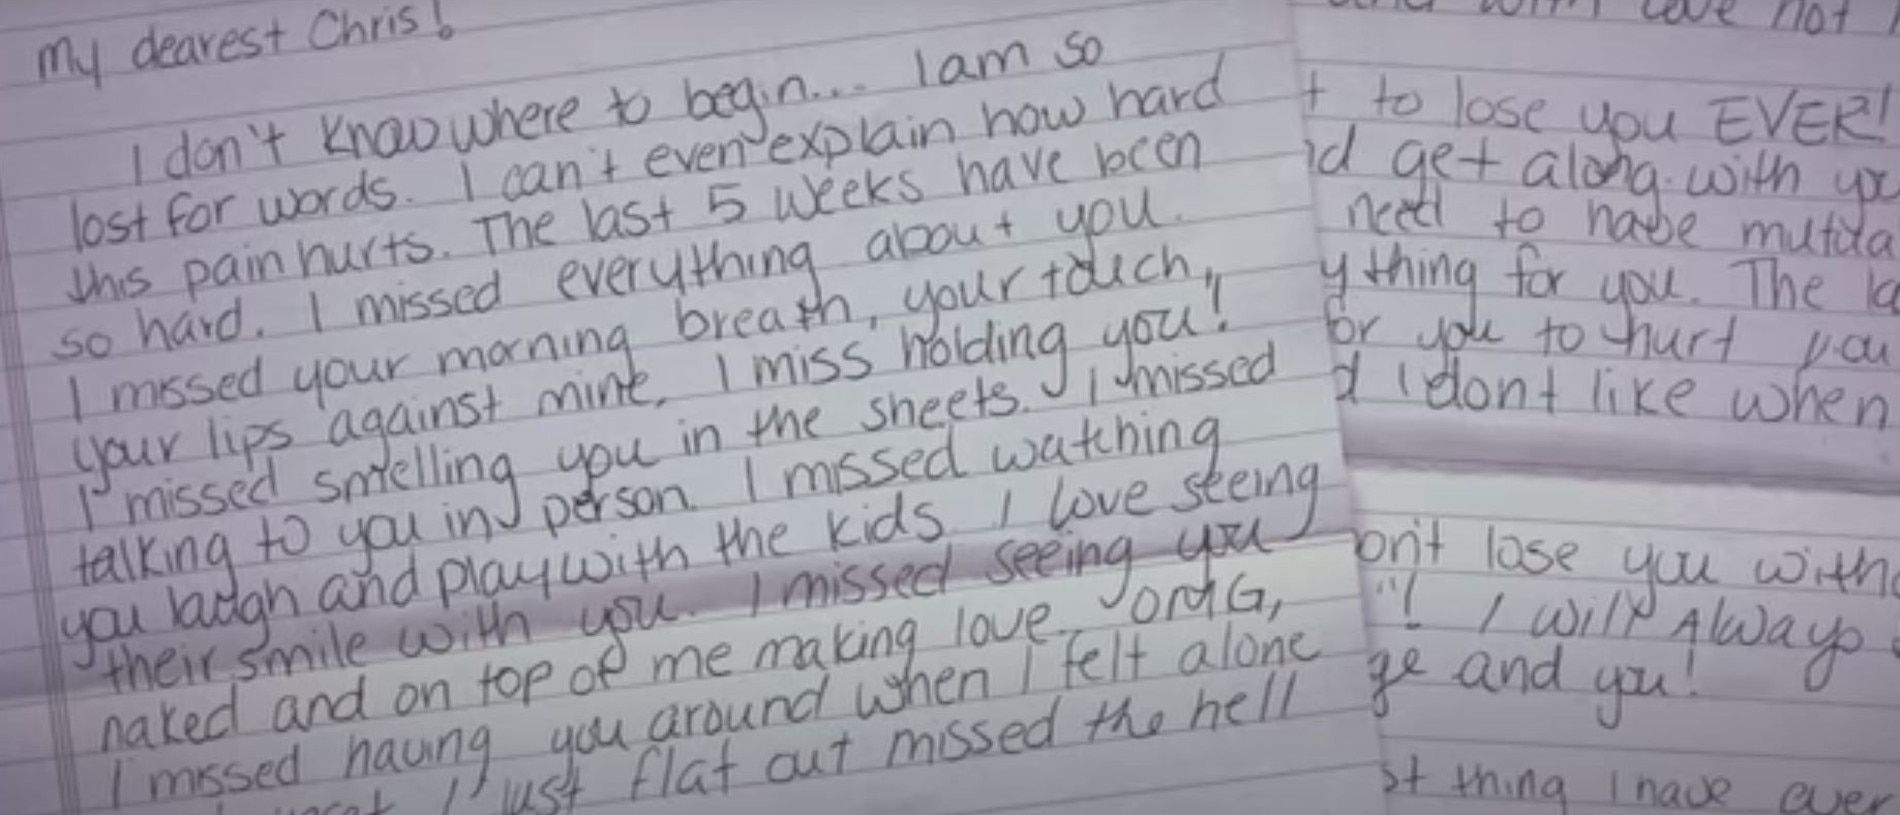 My dearest Chris!
I don't know where to begin... I am so
lost for words. I can't even explain how hard
this pain hurts. The last 5 weeks have been
so hard. I missed everything about you.
I missed your morning breath, your touch,
your lips against mine. I miss holding you!
I missed smelling you in the sheets. I missed
talking to you in person. I missed watching
you laugh and play with the kids. I love seeing
their smile with you. I missed seeing you
naked and on top of me making love. OMG,
I missed having you around when I felt alone
I just flat out missed the hell
love not
to lose you EVER!
get along with you
need to have
thing for you. The
for you to hurt you
I dont like when
lose you
! I will Always
and you!
thing I have ever